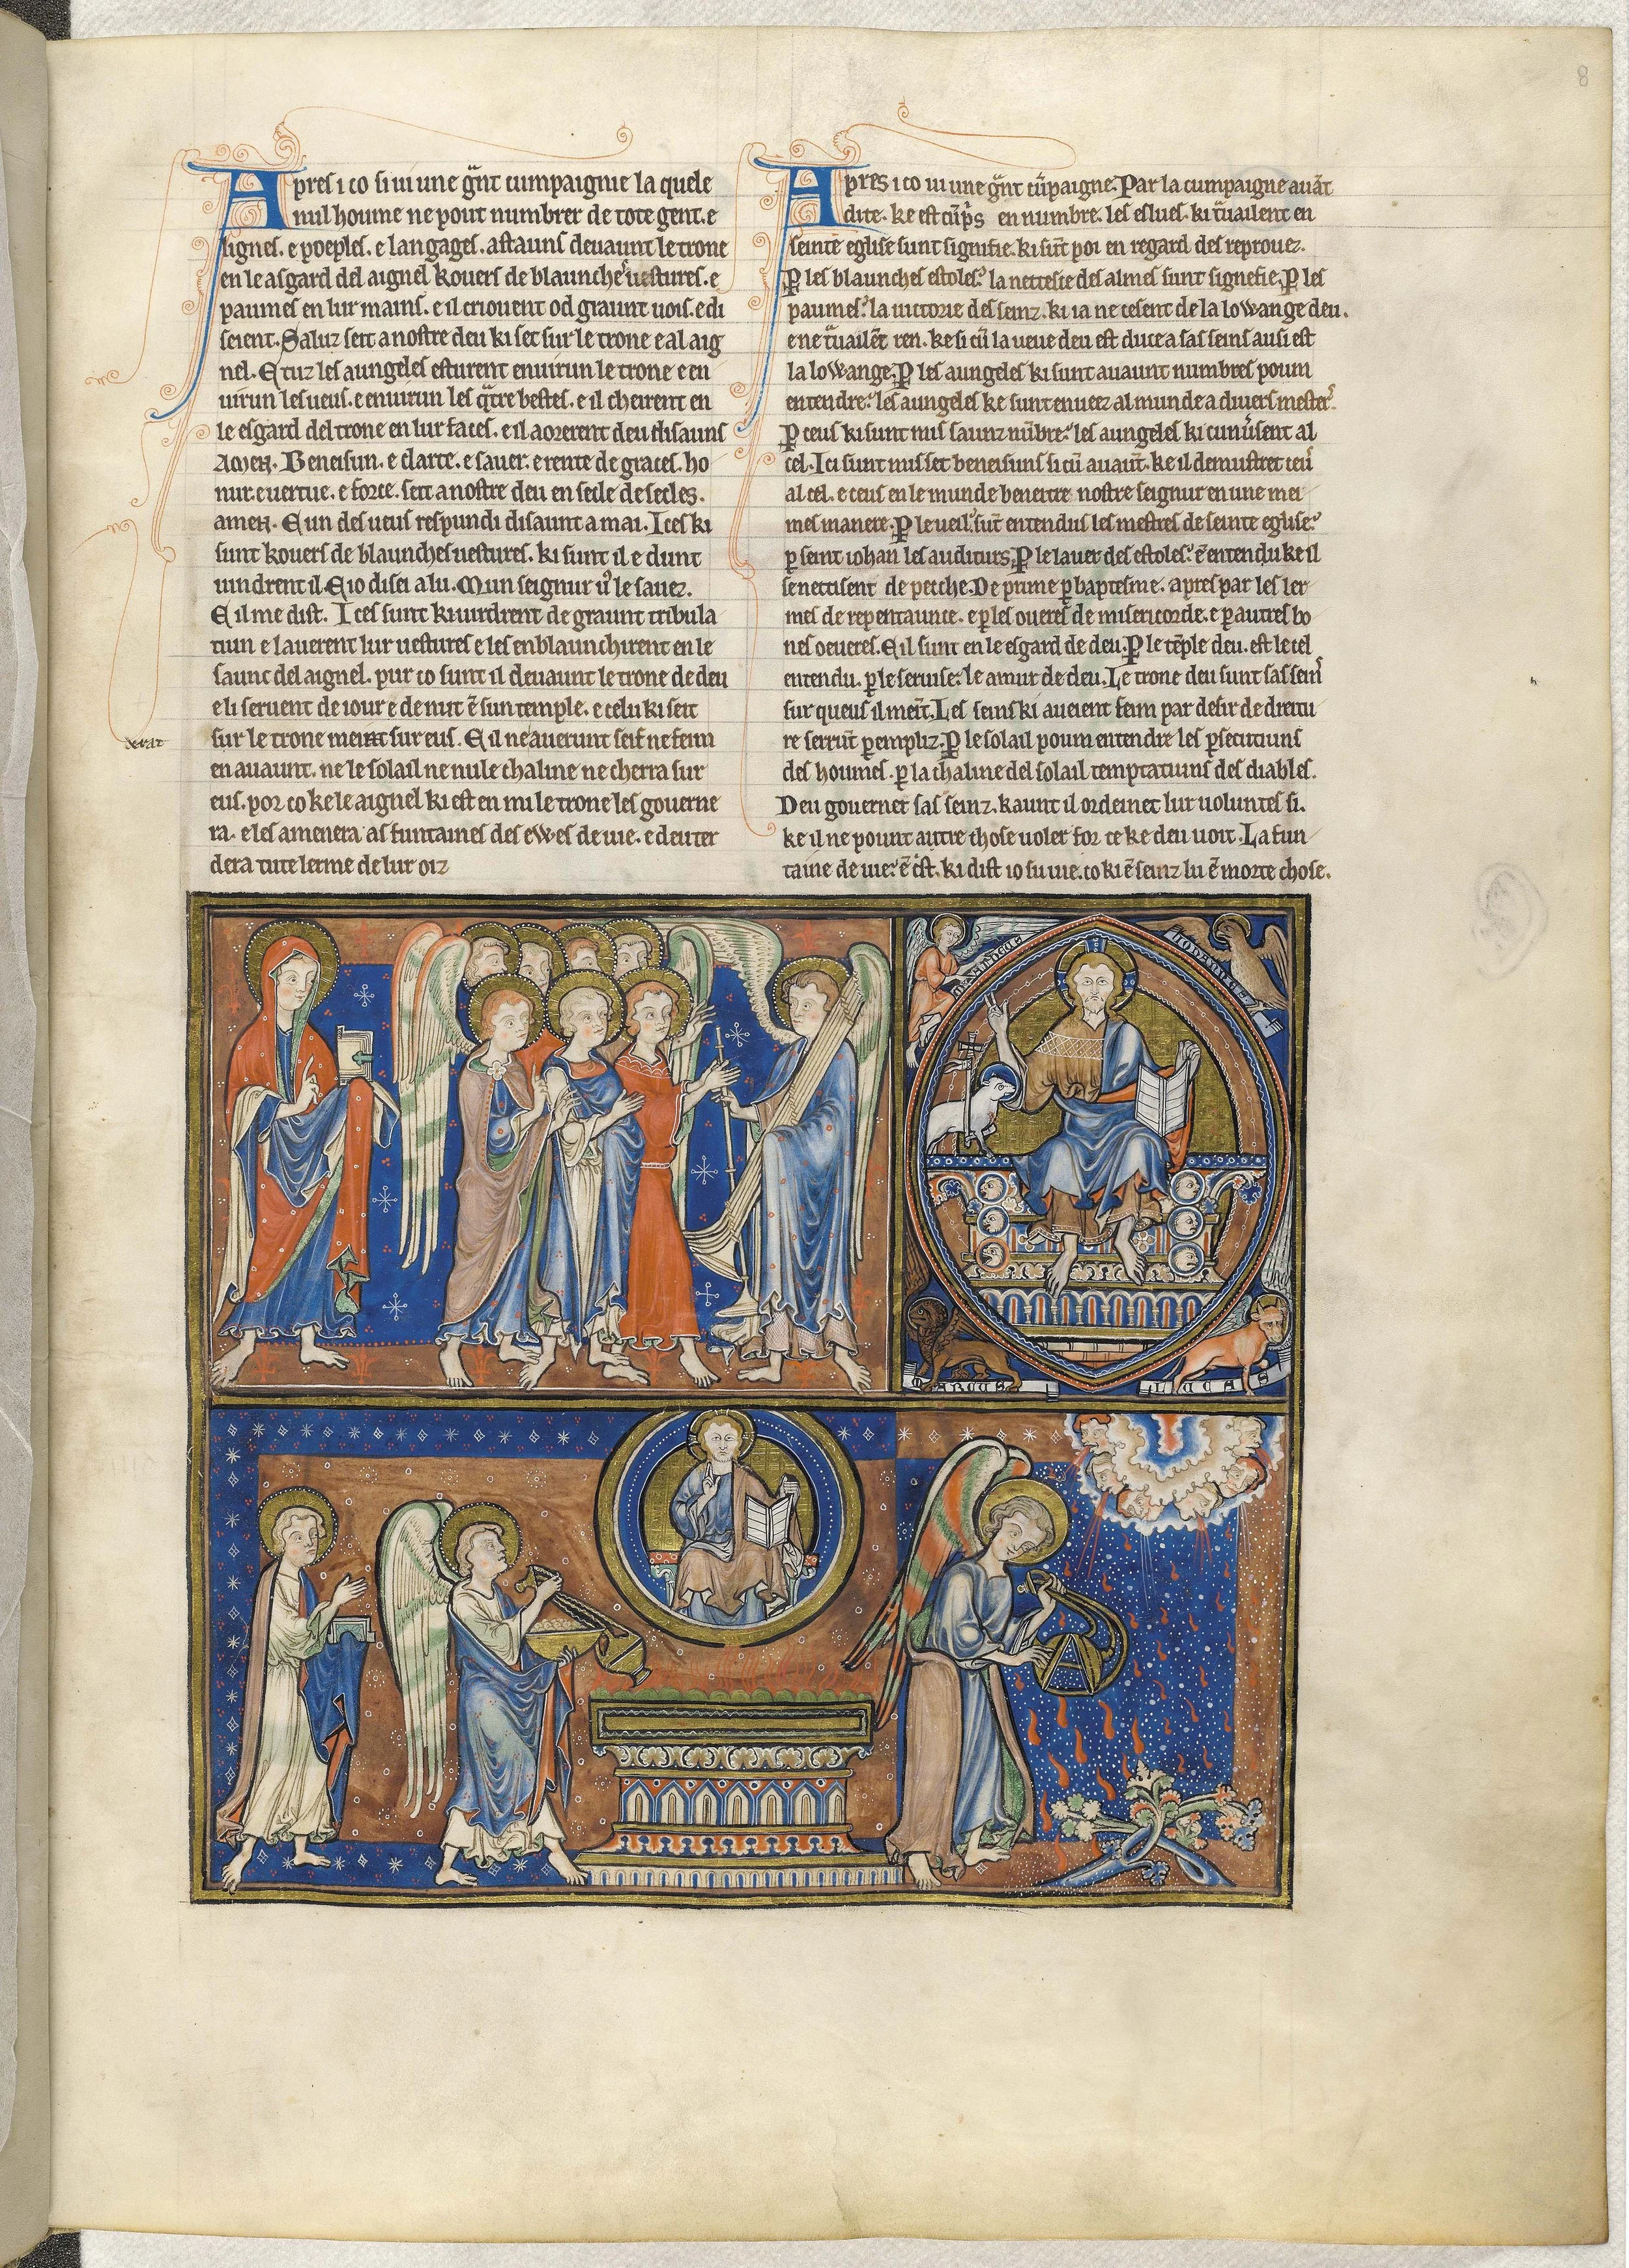 Apres i co si ui une gñt cumpaignie la quele
nul houme ne pout numbrer de tote gent. e
lignes. e poeples. e langages. astauns deuaunt le trone
en le asgard del aignel kouers de blaunches uestures. e
paumes en lur mains. e il criouent od graunt uois. e di
seient. Saluz seit a nostre deu ki set sur le trone e al aig
nel. E tuz les aungeles esturent enuirun le trone e en
uirun les ueus. e enuirun les q̃tre bestes. e il cheirent en
le esgard del trone en lur faces. e il aorerent deu disauns
AMEN. Beneisun. e clarte. e sauer. e rente de graces. ho
nur e uertue. e force. seit a nostre deu en secle de secles.
amen. E un des ueus respundi disaunt a mai. Ices ki
sunt kouers de blaunches uestures. ki sunt il e dunt
uindrent il. E io disei a lu. Mun seignur u᾽ le sauez.
E il me dist. Ices sunt ki uirdrent de graunt tribula
tiun e lauerent lur uestures e les enblaunchirent en le
saunc del aignel. pur co sunt il deuaunt le trone de deu
e li seruent de iour e de nuit ẽ sun temple. e celu ki seit
sur le trone meint sur eus. E il ne auerunt seif ne feim
en auaunt. ne le solail ne nule chaline ne cherra sur
eus. por co ke le aignel ki est en mi le trone les gouerne
ra. e les amenera as funtaines des ewes de uie. e deu ter
dera tute lerme de lur oiz
Apres i co ui une gñt cũpaigne. Par la cumpaigne auãt
dite. ke est cũp̃s en numbre. les eslues. ki t̃uailent en
seinte eglise sunt signifie. ki sũt poi en regard des reprouez.
P les blaunches estoles. la netteste des almes sunt signefie. P les
paumes. la uictorie des seinz. ki ia ne cesent de la lowange deu.
e ne t̃uailẽt ren. ke si cũ la ueue deu est duce a sas seins ausi est
la lowange. P les aungeles ki sunt auaunt numbres poum
entendre. les aungeles ke sunt enueez al munde a diuers mester᾽.
P ceus ki sunt mis saunz nũbre. les aungeles ki cunũsent al
cel. Ici sunt mis set beneisuns si cũ auaũt. ke il demustret ceu᾽
al cel. e ceus en le munde beneitre nostre seignur en une mei
mes manere. P le ueil. sũt entendus les mestres de seinte eglise.
p seint iohan les auditurs. P le lauer des estoles. ẽ entendu ke il
se nettisent de petche. De prime p baptesme. apres par les ler
mes de repentaunce. e p les oueres de misericorde. e p autres bo
nes oeueres. E il sunt en le esgard de deu. P le tẽple deu. est le cel
entendu. p le seruise. le amur de deu. Le trone deu sunt sas sein᾽
sur queus il meĩt. Les seins ki aueient feim par desir de dreitu
re serrũt p empliz. P le solail poum entendre les p̃secutiuns
des houmes. p la chaline del solail temptatiuns des diables.
Deu gouernet sas seinz. kaunt il ordeinet lur uoluntes si.
ke il ne pount autre chose uoler for ce ke deu uout. La fun
taine de uie. ẽ c᾽st. ki dist io su uie. co ki ẽ seinz lu ẽ morte chose.
8
IOHANNES
MARCUS
LUCAS